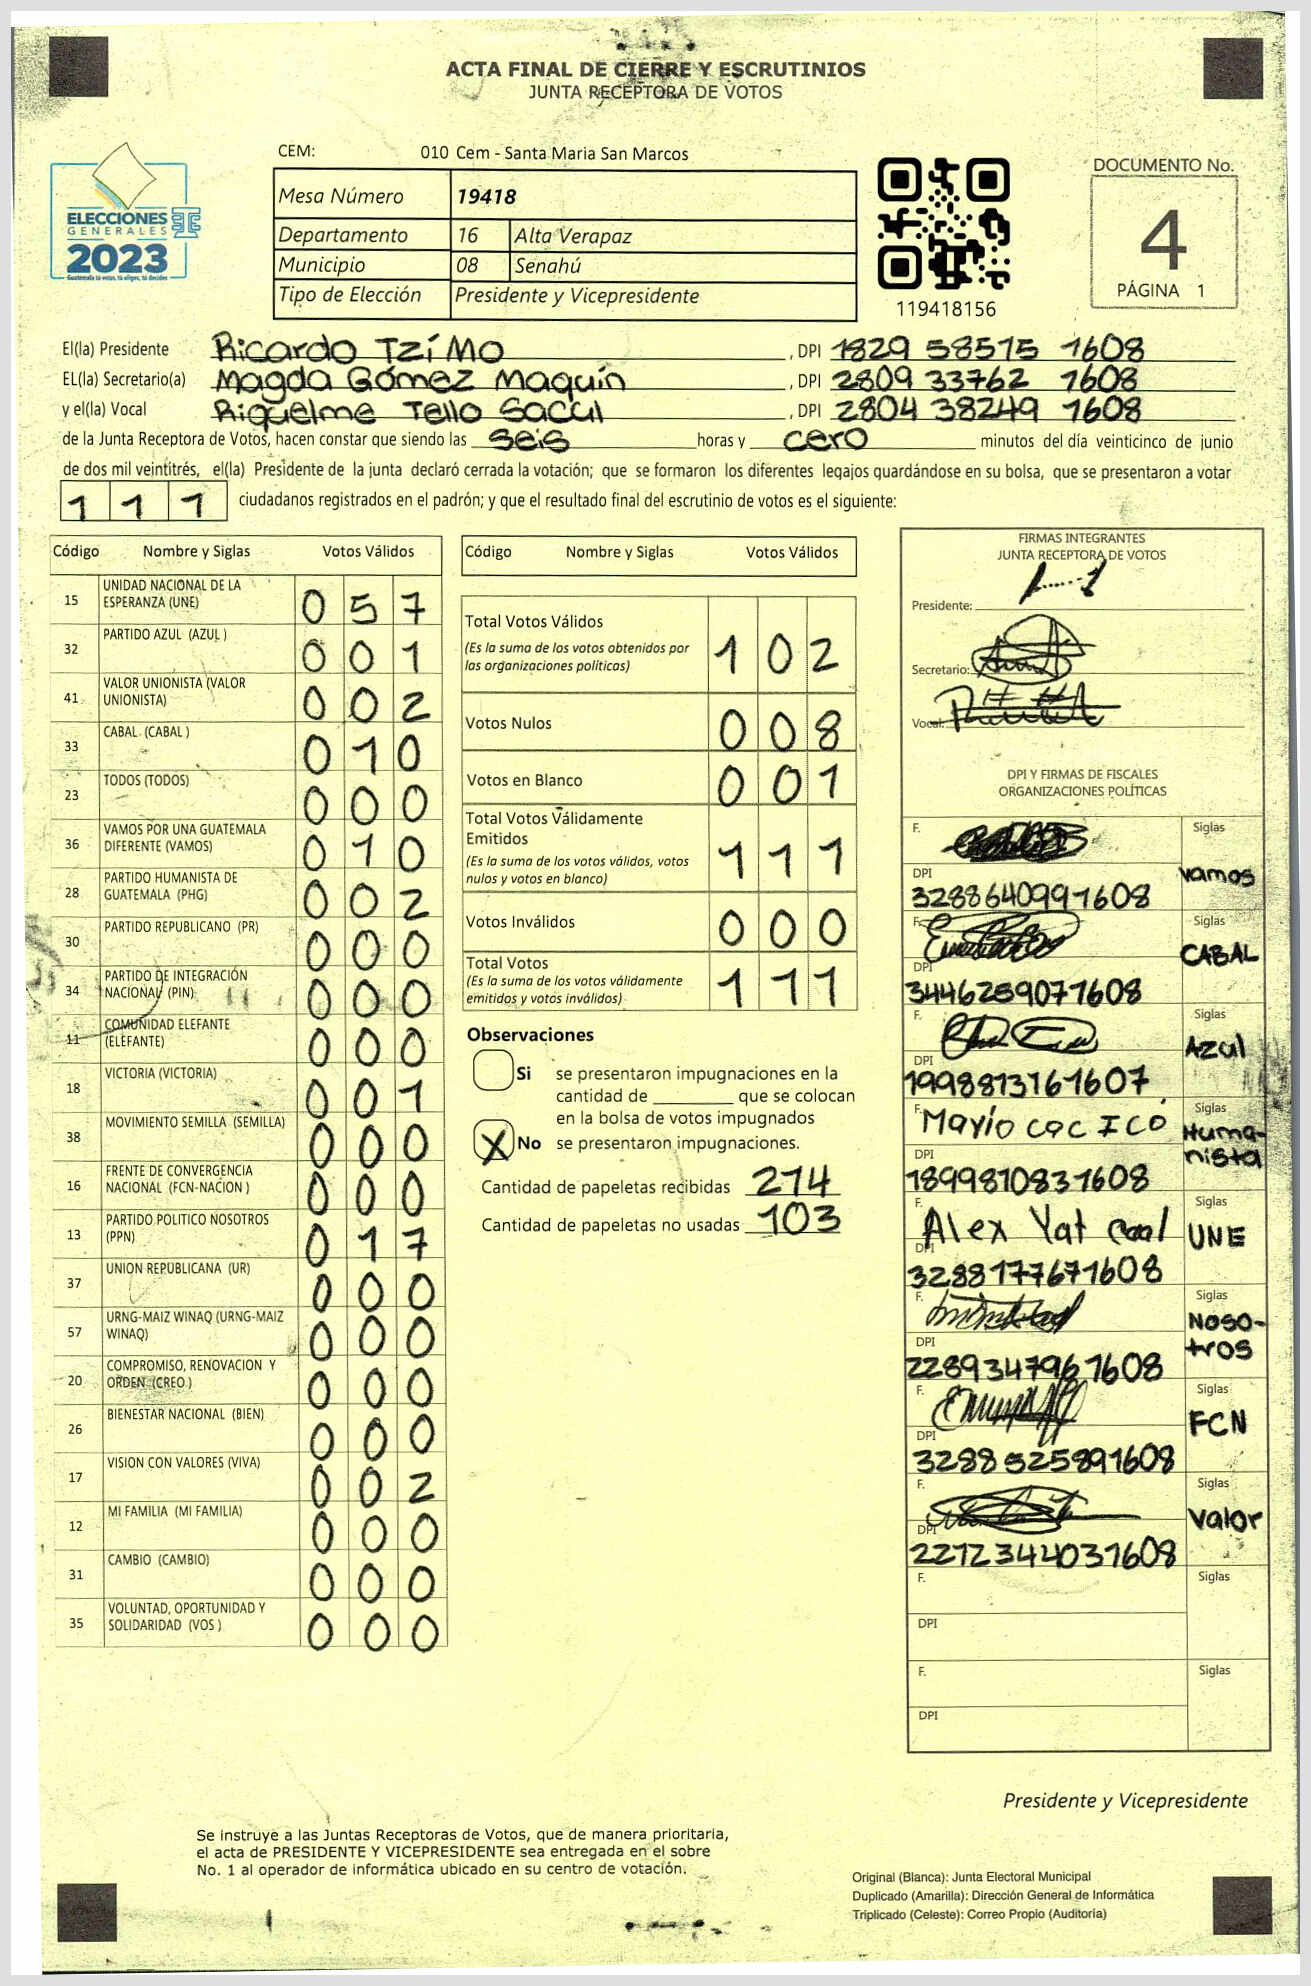 ACTA FINAL DE CIERRE Y ESCRUTINIOS
JUNTA RECEPTORA DE VOTOS
ELECCIONES
GENERALES
2023
Guatemala tú votas, tú eliges, tú decides
CEM: 010 Cem - Santa Maria San Marcos
Mesa Número 19418
Departamento 16 Alta Verapaz
Municipio 08 Senahú
Tipo de Elección Presidente y Vicepresidente
119418156
DOCUMENTO No.
4
PÁGINA 1
El(la) Presidente Ricardo Tzí Mo , DPI 1829 58515 1608
EL(la) Secretario(a) Magda Gómez Maquín , DPI 2809 33762 1608
y el(la) Vocal Riquelme Tello Sacul , DPI 2804 38249 1608
de la Junta Receptora de Votos, hacen constar que siendo las seis horas y cero minutos del día veinticinco de junio
de dos mil veintitrés, el(la) Presidente de la junta declaró cerrada la votación; que se formaron los diferentes legajos guardándose en su bolsa, que se presentaron a votar
1 1 1 ciudadanos registrados en el padrón; y que el resultado final del escrutinio de votos es el siguiente:
Código Nombre y Siglas Votos Válidos
15 UNIDAD NACIONAL DE LA ESPERANZA (UNE) 0 5 7
32 PARTIDO AZUL (AZUL ) 0 0 1
41 VALOR UNIONISTA (VALOR UNIONISTA) 0 0 2
33 CABAL (CABAL ) 0 1 0
23 TODOS (TODOS) 0 0 0
36 VAMOS POR UNA GUATEMALA DIFERENTE (VAMOS) 0 1 0
28 PARTIDO HUMANISTA DE GUATEMALA (PHG) 0 0 2
30 PARTIDO REPUBLICANO (PR) 0 0 0
34 PARTIDO DE INTEGRACIÓN NACIONAL (PIN) 0 0 0
11 COMUNIDAD ELEFANTE (ELEFANTE) 0 0 0
18 VICTORIA (VICTORIA) 0 0 1
38 MOVIMIENTO SEMILLA (SEMILLA) 0 0 0
16 FRENTE DE CONVERGENCIA NACIONAL (FCN-NACION ) 0 0 0
13 PARTIDO POLITICO NOSOTROS (PPN) 0 1 7
37 UNION REPUBLICANA (UR) 0 0 0
57 URNG-MAIZ WINAQ (URNG-MAIZ WINAQ) 0 0 0
20 COMPROMISO, RENOVACION Y ORDEN (CREO ) 0 0 0
26 BIENESTAR NACIONAL (BIEN) 0 0 0
17 VISION CON VALORES (VIVA) 0 0 2
12 MI FAMILIA (MI FAMILIA) 0 0 0
31 CAMBIO (CAMBIO) 0 0 0
35 VOLUNTAD, OPORTUNIDAD Y SOLIDARIDAD (VOS ) 0 0 0
Código Nombre y Siglas Votos Válidos
Total Votos Válidos
(Es la suma de los votos obtenidos por
las organizaciones políticas) 1 0 2
Votos Nulos 0 0 8
Votos en Blanco 0 0 1
Total Votos Válidamente
Emitidos
(Es la suma de los votos válidos, votos
nulos y votos en blanco) 1 1 1
Votos Inválidos 0 0 0
Total Votos
(Es la suma de los votos válidamente
emitidos y votos inválidos) 1 1 1
Observaciones
Si se presentaron impugnaciones en la
cantidad de ________ que se colocan
en la bolsa de votos impugnados
X No se presentaron impugnaciones.
Cantidad de papeletas recibidas 214
Cantidad de papeletas no usadas 103
FIRMAS INTEGRANTES
JUNTA RECEPTORA DE VOTOS
Presidente:
Secretario:
Vocal:
DPI Y FIRMAS DE FISCALES
ORGANIZACIONES POLÍTICAS
F. Siglas
DPI Vamos
3288640991608
F. Siglas
DPI CABAL
3446259071608
F. Siglas
DPI Azul
1998813161607
F. Mario coc Icó Siglas
DPI Humanista
1899810831608
F. Alex Yat Caal Siglas
DPI UNE
3288177671608
F. Siglas
DPI Nosotros
2289347961608
F. Siglas
DPI FCN
3288525891608
F. Siglas
DPI Valor
2212344031608
F. Siglas
DPI
F. Siglas
DPI
Presidente y Vicepresidente
Se instruye a las Juntas Receptoras de Votos, que de manera prioritaria,
el acta de PRESIDENTE Y VICEPRESIDENTE sea entregada en el sobre
No. 1 al operador de informática ubicado en su centro de votación.
Original (Blanca): Junta Electoral Municipal
Duplicado (Amarilla): Dirección General de Informática
Triplicado (Celeste): Correo Propio (Auditoría)